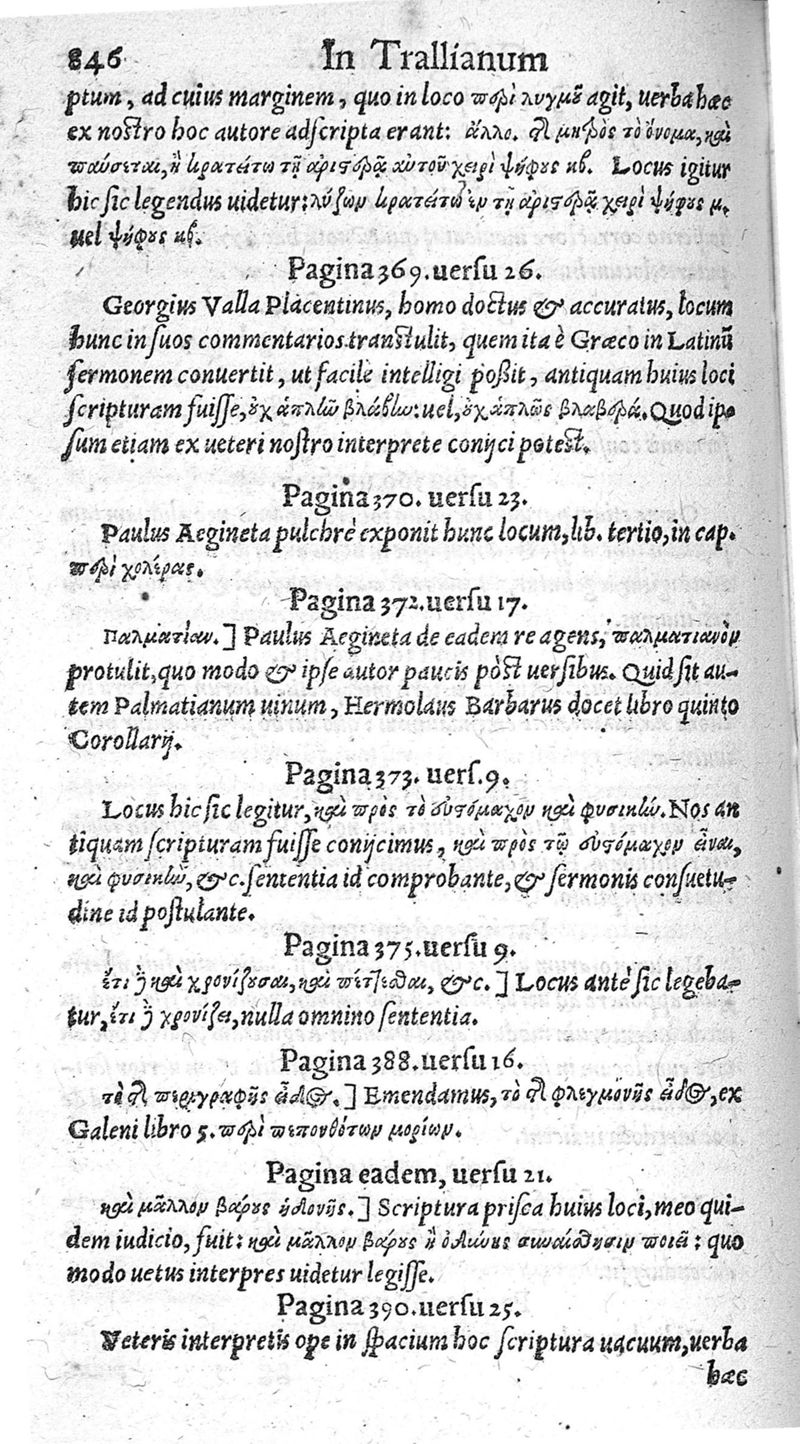 846 In Trallianum
ptum, ad cuius marginem, quo in loco περὶ λυγμοῦ agit, uerba hæc
ex nostro hoc autore adscripta erant: ἄλλο. τῆς μητρὸς τὸ ὄνομα, καὶ
παύσεται, ἢ κρατείτω τῇ ἀριστερᾷ αὐτοῦ χειρὶ ψήφους κβ. Locus igitur
hic sic legendus uidetur: λύζων κρατείτω ἐν τῇ ἀριστερᾷ χειρὶ ψήφους μ.
uel ψήφους κβ.
Pagina 369. uersu 26.
Georgius Valla Placentinus, homo doctus & accuratus, locum
hunc in suos commentarios transtulit, quem ita è Græco in Latinū
sermonem conuertit, ut facile intelligi poßit, antiquam huius loci
scripturam fuisse, οὐχ ἁπλῶν βλάβην: uel, οὐχ ἁπλῶς βλαβερά. Quod ip-
sum etiam ex ueteri nostro interprete conijci potest.
Pagina 370. uersu 23.
Paulus Aegineta pulchrè exponit hunc locum, lib. tertio, in cap.
περὶ χολέρας.
Pagina 372. uersu 17.
Παλματίαν.] Paulus Aegineta de eadem re agens, παλματιανὸν
protulit, quo modo & ipse autor paucis pòst uersibus. Quid sit au-
tem Palmatianum uinum, Hermolaus Barbarus docet libro quinto
Corollarij.
Pagina 373. uers. 9.
Locus hic sic legitur, καὶ πρὸς τὸ εὐστόμαχον καὶ φυσικὴν. Nos an
tiquam scripturam fuisse conijcimus, καὶ πρὸς τῷ εὐστόμαχον εἶναι,
καὶ φυσικὴν, &c. sententia id comprobante, & sermonis consuetu-
dine id postulante.
Pagina 375. uersu 9.
ἔτι δὲ καὶ χρονίζουσαι, καὶ πέττεσθαι, &c.] Locus antè sic legeba-
tur, ἔτι δὲ χρονίζει, nulla omnino sententia.
Pagina 388. uersu 16.
τὸ τῆς περιγραφῆς εἶδος.] Emendamus, τὸ τῆς φλεγμονῆς εἶδος, ex
Galeni libro 5. περὶ πεπονθότων μορίων.
Pagina eadem, uersu 21.
καὶ μᾶλλον βάρους ἡδονῆς.] Scriptura prisca huius loci, meo qui-
dem iudicio, fuit: καὶ μᾶλλον βάρους ἢ ὀδύνης συναίσθησιν ποιεῖ: quo
modo uetus interpres uidetur legisse.
Pagina 390. uersu 25.
Veteris interpretis ope in spacium hoc scriptura uacuum, uerba
hæc